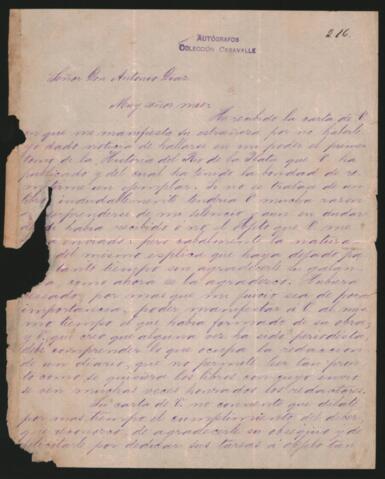 AUTÓGRAFOS
COLECCIÓN CASAVALLE
216.
Señor Don Antonio Diaz
Muy señor mio:
He recibido la carta de V.
en que me manifiesta su estrañeza por no haberle
dado noticia de hallarse en mi poder el primer
tomo de la Historia del Rio de la Plata que V. ha
publicado y del cual ha tenido la bondad de re-
mitirme un ejemplar. Si no se tratase de un
libro indudablemente tendria V. mucha razon
sorprenderse de mi silencio y aun en dudar
si habia recibido ó no el objeto que V. me
enviado; pero cabalmente la natura-
del mismo esplica que haya dejado pa-
tanto tiempo sin agradecerle su galan-
como ahora se la agradezco. Hubiera
deseado, por mas que mi juicio sea de poca
importancia, poder manifestar á V. al mis-
mo tiempo el que habia formado de su obra;
y V., que creo que alguna vez ha sido periodista,
debe comprender lo que ocupa la redaccion
de un diario, que no permite leer tan pron-
to como se quisiera los libros con cuyo envio
se ven muchas veces honrados los redactores.
Su carta de V. no consiente que dilate
por mas tiempo el cumplimiento del deber
que reconozco de agradecerle su obsequio y de
felicitarle por dedicar sus tareas á objeto tan